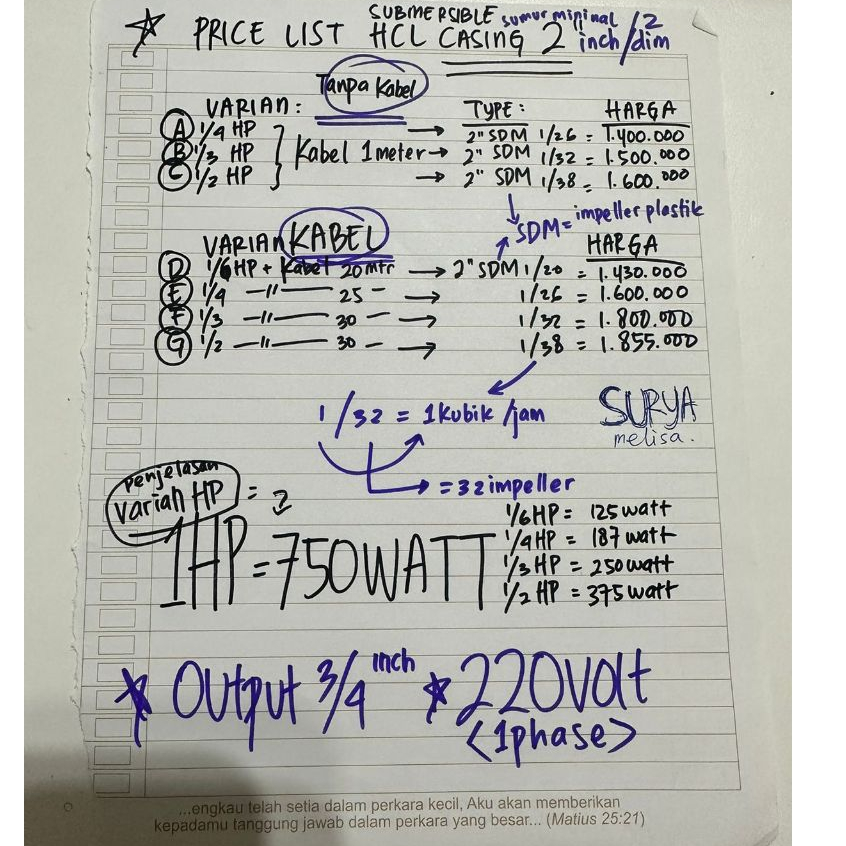 SUBMERSIBLE sumur minimal 2
☆ PRICE LIST HCL CASING 2" inch/dim
Tanpa Kabel
VARIAN: TYPE: HARGA
A 1/4 HP → 2" SDM 1/26 = 1.400.000
B 1/3 HP } Kabel 1 meter → 2" SDM 1/32 = 1.500.000
C 1/2 HP → 2" SDM 1/38 = 1.600.000
SDM = impeller plastik
VARIAN KABEL HARGA
D 1/6 HP + Kabel 20 mtr → 2" SDM 1/20 = 1.430.000
E 1/4 —〃— 25 — → 1/26 = 1.600.000
F 1/3 —〃— 30 — → 1/32 = 1.800.000
G 1/2 —〃— 30 — → 1/38 = 1.855.000
1/32 = 1 Kubik /jam
SURYA
melisa.
→ = 32 impeller
Penjelasan
Varian HP = ?
1HP = 750WATT
1/6 HP = 125 watt
1/4 HP = 187 watt
1/3 HP = 250 watt
1/2 HP = 375 watt
* Output 3/4 inch * 220volt
<1phase>
...engkau telah setia dalam perkara kecil, Aku akan memberikan
kepadamu tanggung jawab dalam perkara yang besar... (Matius 25:21)